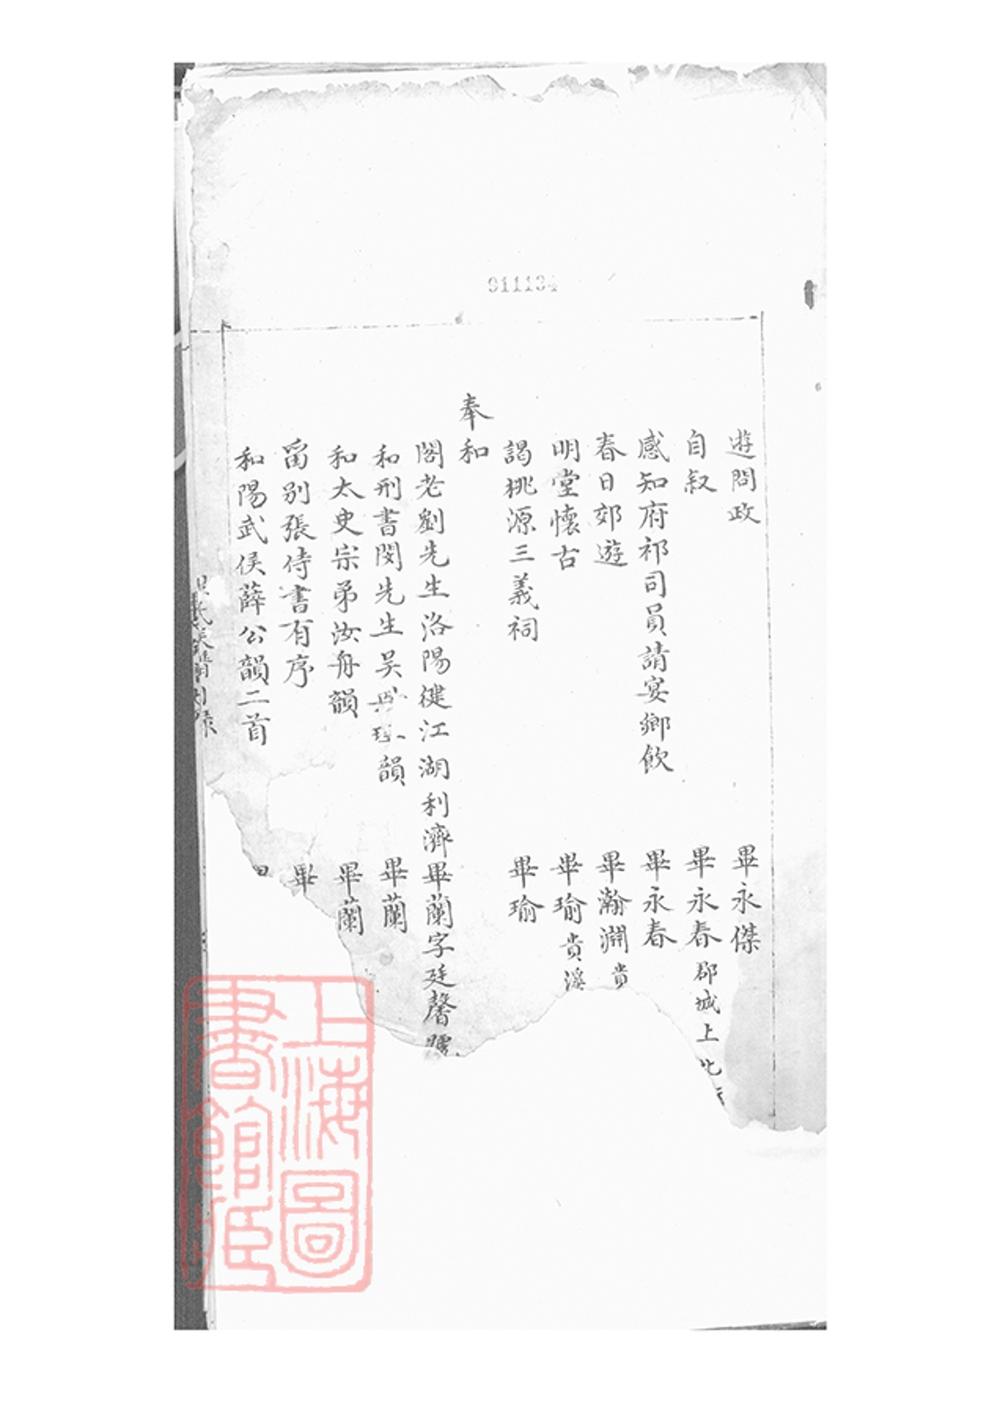 911134
遊問政 畢永傑
自叙 畢永春 郡城上北
感知府祁司員請宴鄉飲 畢永春
春日郊遊 畢瀚淵 貴
明堂懷古 畢瑜 貴溪
謁桃源三義祠 畢瑜
奉和
閣老劉先生洛陽健江湖利濟 畢蘭字廷馨號
和刑書閔先生吴 韻 畢蘭
和太史宗弟汝舟韻 畢蘭
畱別張侍書有序 畢
和陽武侯薛公韻二首
上海圖書館藏